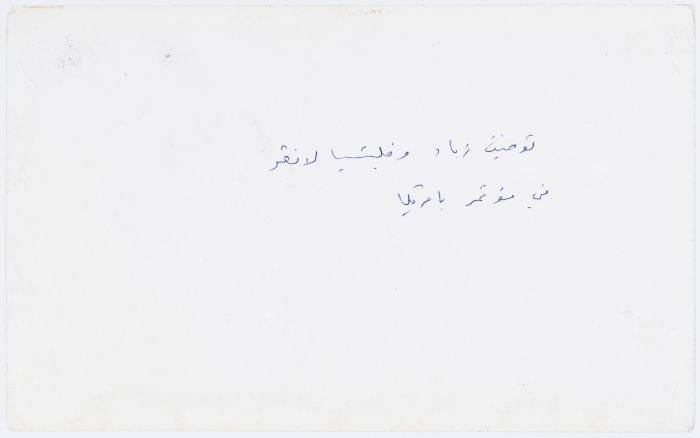 توفيق زياد وفليتسيا لانقر
في مؤتمر بامريكا